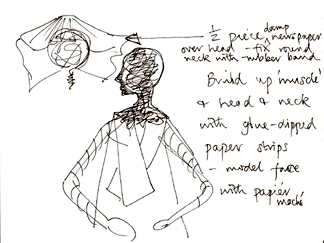 ½ piece damp newspaper
over head - fix round
neck with rubber band
Build up 'muscle'
& head & neck
with glue-dipped
paper strips
- model face
with papier
maché